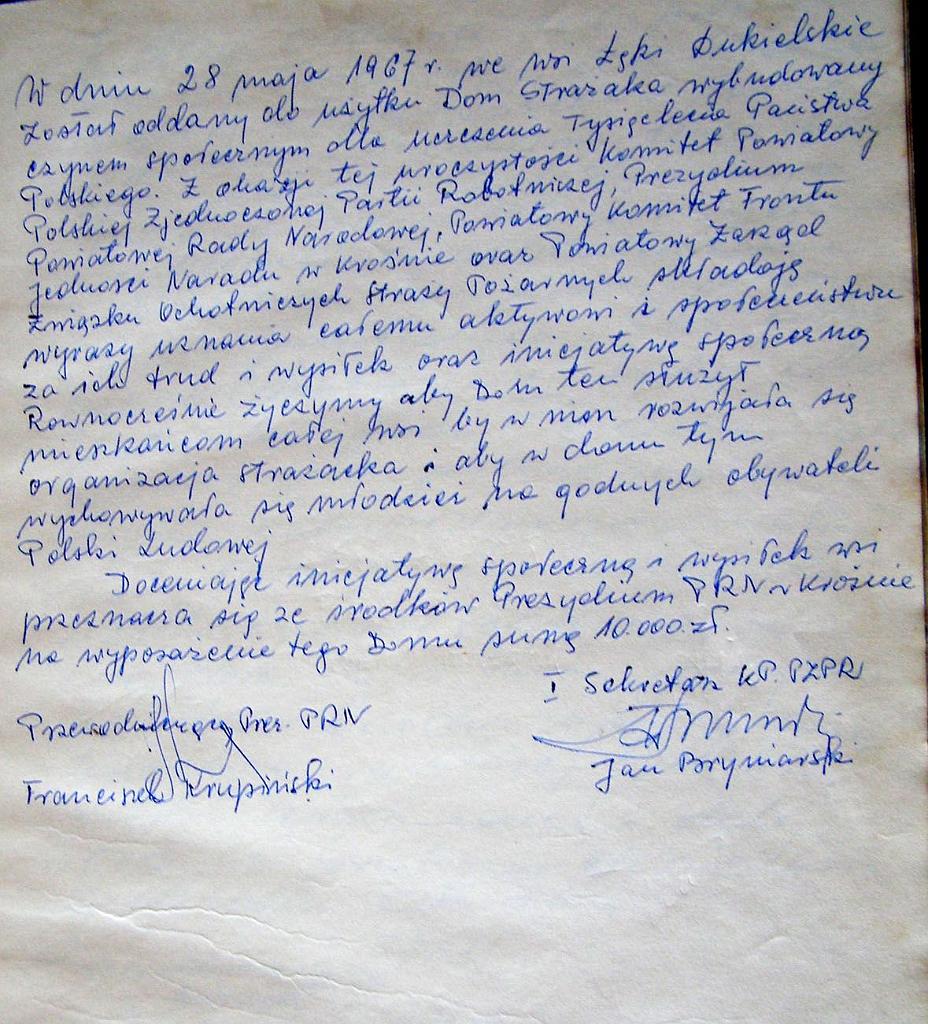 W dniu 28 maja 1967 r. we wsi Łęki Dukielskie
został oddany do użytku Dom Strażaka wybudowany
czynem społecznym dla uczczenia Tysiąclecia Państwa
Polskiego. Z okazji tej uroczystości Komitet Powiatowy
Polskiej Zjednoczonej Partii Robotniczej, Prezydium
Powiatowej Rady Narodowej, Powiatowy Komitet Frontu
Jedności Narodu w Krośnie oraz Powiatowy Zarząd
Związku Ochotniczych Straży Pożarnych składają
wyrazy uznania całemu aktywowi i społeczeństwu
za ich trud i wysiłek oraz inicjatywę społeczną
Równocześnie życzymy aby Dom ten służył
mieszkańcom całej wsi by w nim rozwijała się
organizacja strażacka i aby w domu tym
wychowywała się młodzież na godnych obywateli
Polski Ludowej
Doceniając inicjatywę społeczną i wysiłek wsi
przeznacza się ze środków Prezydium PRN w Krośnie
na wyposażenie tego Domu sumę 10.000 zł.
I Sekretarz KP. PZPR
Przewodniczący Prez. PRN
Jan Bryniarski
Franciszek Krupiński